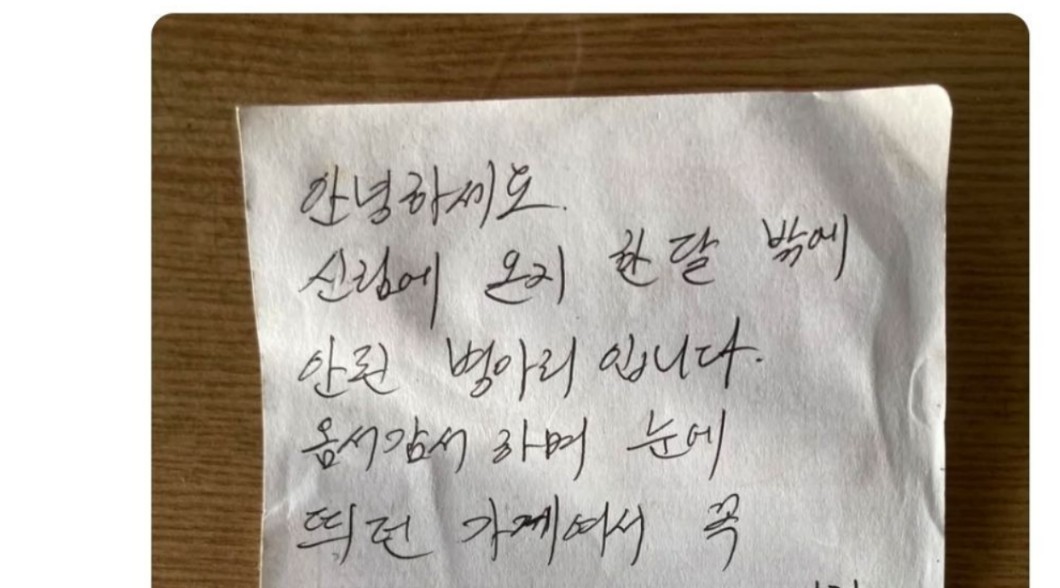 안녕하세요.
신림에 온지 한달 밖에
안된 병아리 입니다.
옴서감서 하며 눈에
띄던 가게여서 꼭